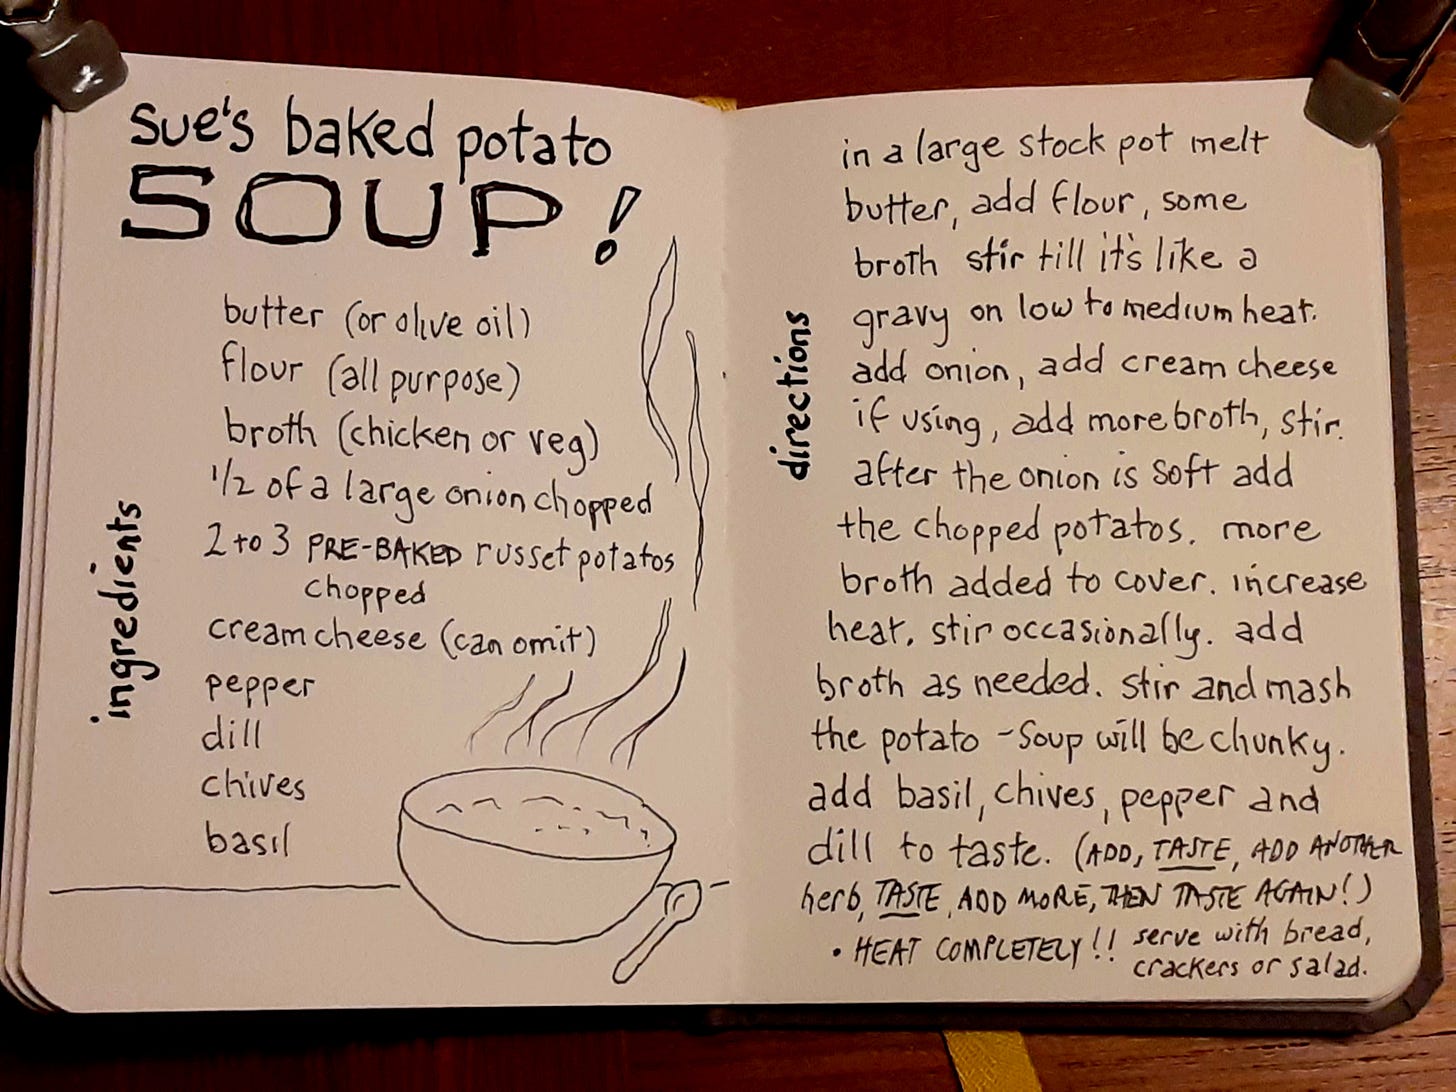 sue's baked potato
SOUP!
ingredients
butter (or olive oil)
flour (all purpose)
broth (chicken or veg)
1/2 of a large onion chopped
2 to 3 PRE-BAKED russet potatos
chopped
cream cheese (can omit)
pepper
dill
chives
basil
directions
in a large stock pot melt
butter, add flour, some
broth stir till it's like a
gravy on low to medium heat.
add onion, add cream cheese
if using, add more broth, stir.
after the onion is soft add
the chopped potatos. more
broth added to cover. increase
heat. stir occasionally. add
broth as needed. stir and mash
the potato - soup will be chunky.
add basil, chives, pepper and
dill to taste. (ADD, TASTE, ADD ANOTHER
herb, TASTE, ADD MORE, THEN TASTE AGAIN!)
• HEAT COMPLETELY!! serve with bread,
crackers or salad.